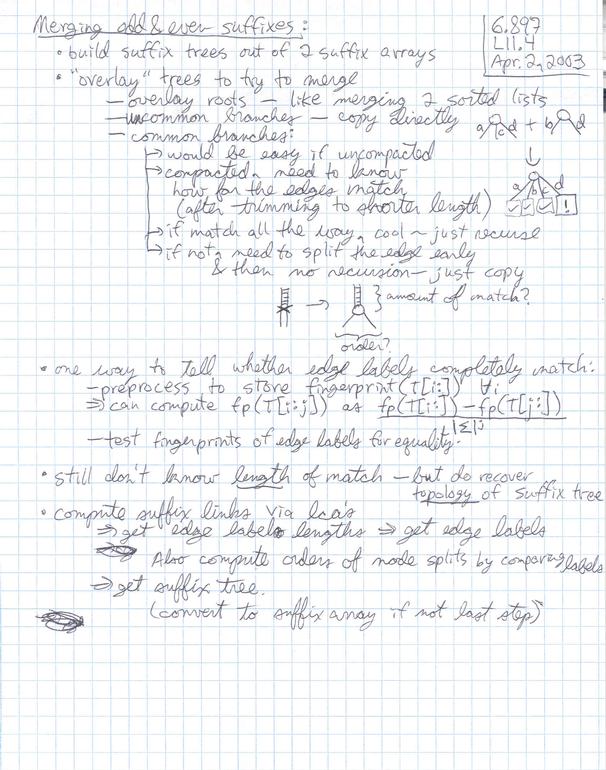 Merging odd & even suffixes:
6.897
L11.4
Apr. 2, 2003
• build suffix trees out of 2 suffix arrays
• "overlay" trees to try to merge
— overlay roots — like merging 2 sorted lists
— uncommon branches — copy directly
a c d + b d
— common branches:
→ would be easy if uncompacted
→ compacted, need to know
how far the edges match
(after trimming to shorter length)
a b c d
!
→ if match all the way, cool ~ just recurse
→ if not, need to split the edge early
& then no recursion — just copy
→ } amount of match?
order?
• one way to tell whether edge labels completely match:
— preprocess to store fingerprint(T[i:]) ∀i
⇒ can compute fp(T[i:j]) as fp(T[i:]) − fp(T[j:])
|Σ|j
— test fingerprints of edge labels for equality.
• still don't know length of match — but do recover
topology of suffix tree
• compute suffix links via lca's
⇒ get edge label lengths ⇒ get edge labels
Also compute orders of node splits by comparing labels
⇒ get suffix tree.
(convert to suffix array if not last step)